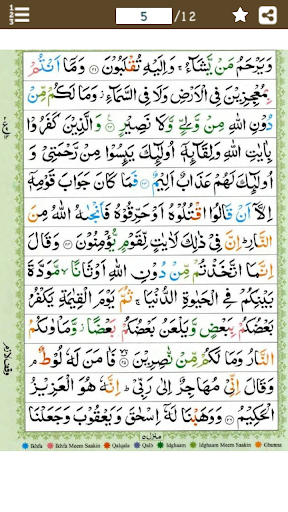 5 /12
وَيَرْحَمُ مَنْ يَّشَآءُ ۚ وَاِلَيْهِ تُقْلَبُوْنَ ﴿۲۱﴾ وَمَآ اَنْتُمْ
بِمُعْجِزِيْنَ فِى الْاَرْضِ وَلَا فِى السَّمَآءِ ۚ وَمَا لَكُمْ مِّنْ
دُوْنِ اللّٰهِ مِنْ وَّلِيٍّ وَّلَا نَصِيْرٍ ﴿۲۲﴾ وَالَّذِيْنَ كَفَرُوْا
بِاٰيٰتِ اللّٰهِ وَلِقَآئِهٖٓ اُولٰٓئِكَ يَئِسُوْا مِنْ رَّحْمَتِيْ وَ
اُولٰٓئِكَ لَهُمْ عَذَابٌ اَلِيْمٌ ﴿۲۳﴾ فَمَا كَانَ جَوَابَ قَوْمِهٖٓ
اِلَّآ اَنْ قَالُوا اقْتُلُوْهُ اَوْ حَرِّقُوْهُ فَاَنْجٰىهُ اللّٰهُ مِنَ
النَّارِ ؕ اِنَّ فِيْ ذٰلِكَ لَاٰيٰتٍ لِّقَوْمٍ يُّؤْمِنُوْنَ ﴿۲۴﴾ وَقَالَ
اِنَّمَا اتَّخَذْتُمْ مِّنْ دُوْنِ اللّٰهِ اَوْثَانًا ۙ مَّوَدَّةَ
بَيْنِكُمْ فِى الْحَيٰوةِ الدُّنْيَا ۚ ثُمَّ يَوْمَ الْقِيٰمَةِ يَكْفُرُ
بَعْضُكُمْ بِبَعْضٍ وَّيَلْعَنُ بَعْضُكُمْ بَعْضًا ؗ وَّمَاْوٰىكُمُ
النَّارُ وَمَا لَكُمْ مِّنْ نّٰصِرِيْنَ ﴿۲۵﴾ فَاٰمَنَ لَهٗ لُوْطٌ ۘ
وَقَالَ اِنِّيْ مُهَاجِرٌ اِلٰى رَبِّيْ ؕ اِنَّهٗ هُوَ الْعَزِيْزُ
الْحَكِيْمُ ﴿۲۶﴾ وَوَهَبْنَا لَهٗٓ اِسْحٰقَ وَيَعْقُوْبَ وَجَعَلْنَا
وقف لازم
منزل ۵
Ikhfa Ikhfa Meem Saakin Qalqala Qalb Idghaam Idghaam Meem Saakin Ghunna